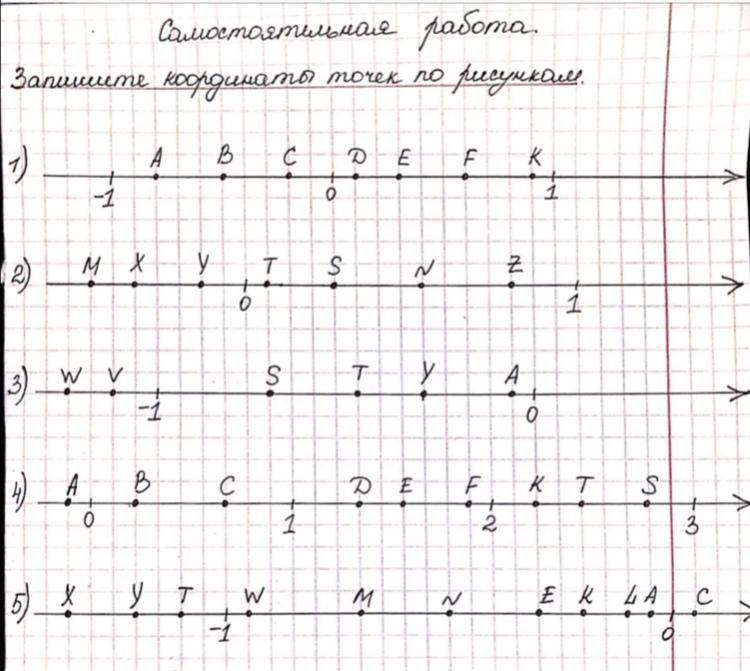 Самостоятельная работа.
Запишите координаты точек по рисункам.
1) A B C D E F K
-1 0 1
2) M X Y T S N Z
0 1
3) W V S T Y A
-1 0
4) A B C D E F K T S
0 1 2 3
5) X Y T W M N E K L A C
-1 0